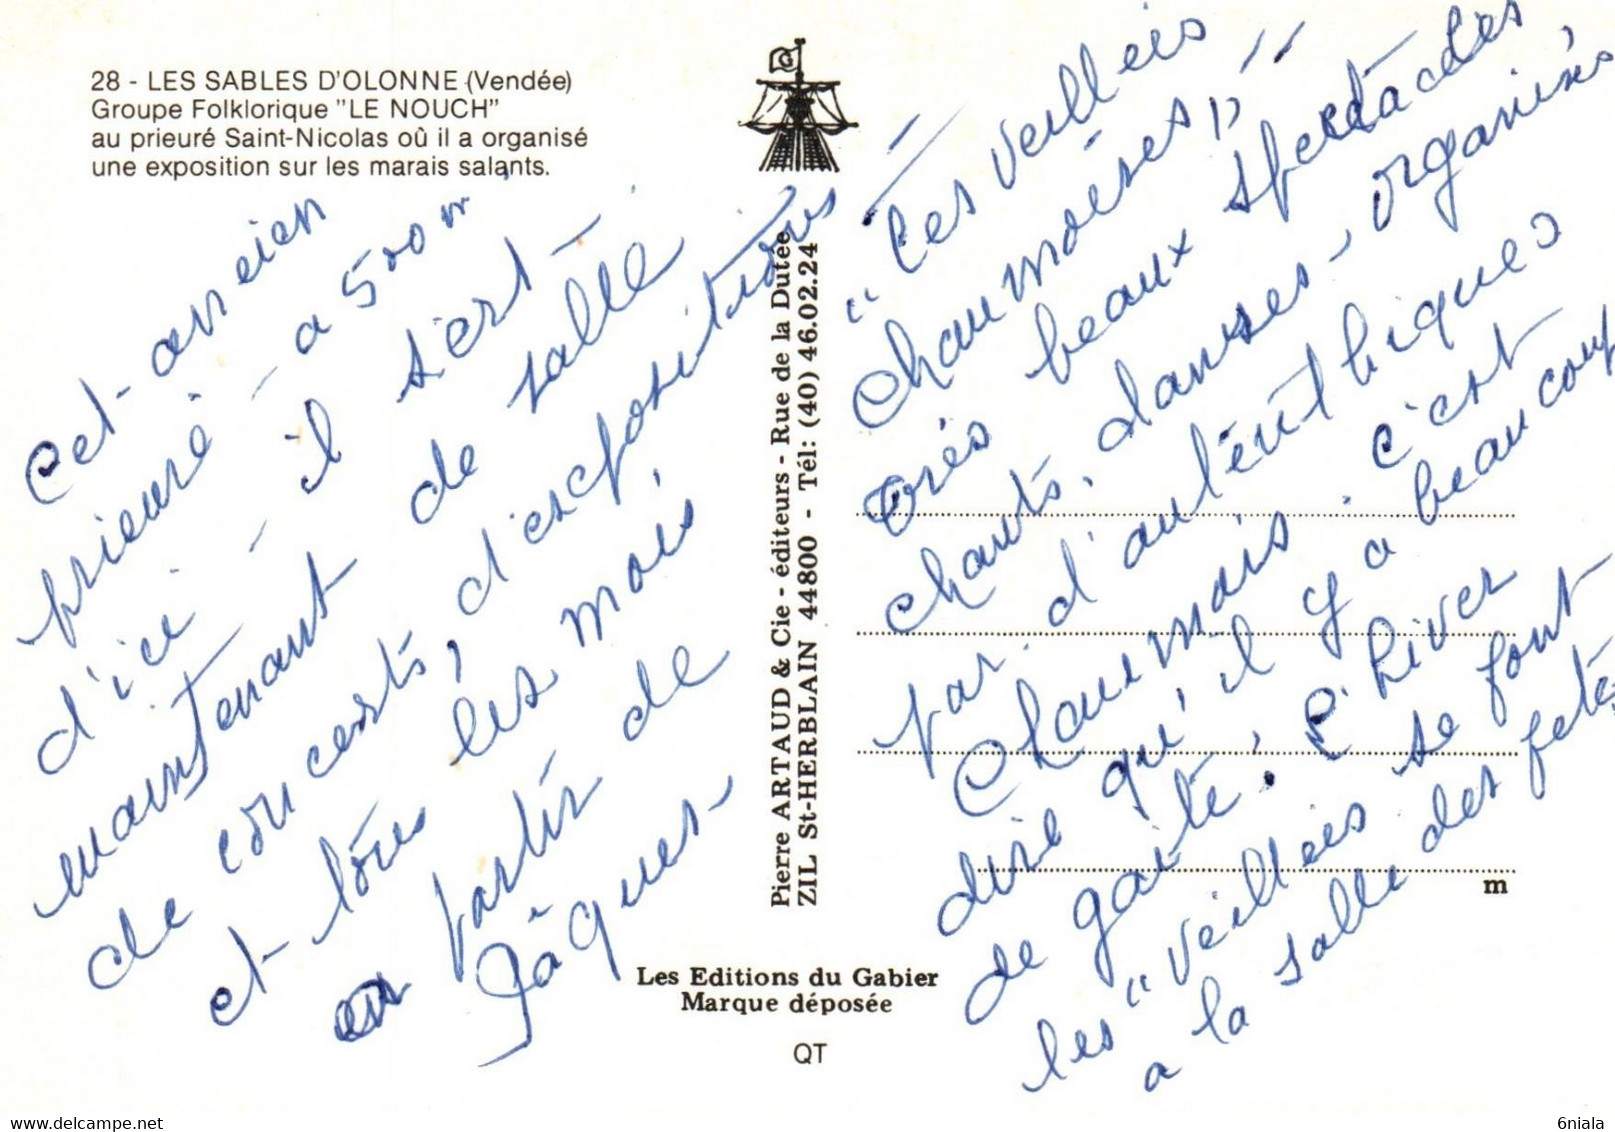 28 - LES SABLES D'OLONNE (Vendée)
Groupe Folklorique "LE NOUCH"
au prieuré Saint-Nicolas où il a organisé
une exposition sur les marais salants.
Cet ancien
prieuré - a 500 m
d'ici - il sert
maintenant de salle
de concerts, d'expositions
et tous les mois
a partir de
Pâques -
Pierre ARTAUD & Cie - éditeurs - Rue de la Dutée
ZIL St-HERBLAIN 44800 - Tél: (40) 46.02.24
"Les veilleis
Chaumoises" --
très beaux spectacles
chants, danses, organisés
par d'autenthiques
Chaumais. c'est
dire qu'il y a beaucoup
de gaité. l'hiver
les "veilleis se font
a la salle des fetes
m
Les Editions du Gabier
Marque déposée
QT
6niala